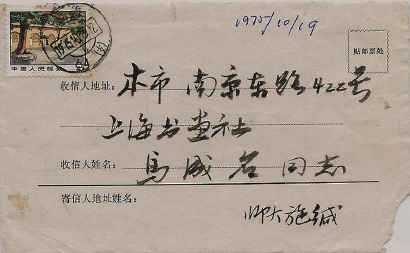 1975/10/19
贴邮票处
中国人民邮政
收信人地址: 本市 南京东路422号
上海书画社
收信人姓名: 马成名 同志
寄信人地址姓名:
师大施缄